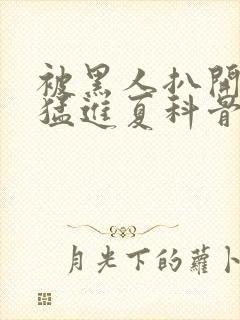 被黑人扒開
猛進夏科骨
月光下的蘿卜